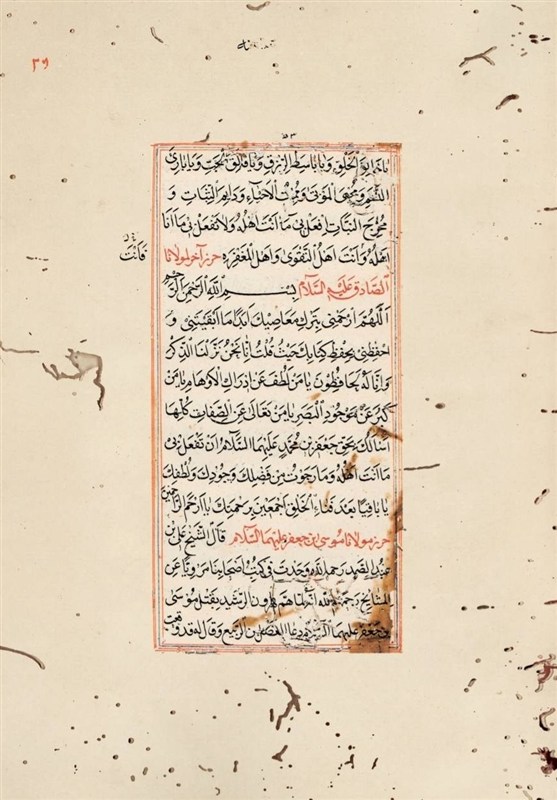 ٣٩
٥٣
يا خالق الخلق ويا باسط الرزق ويا فالق الحب ويا بارئ
النسم ومحيي الموتى ومميت الاحياء ودائم الثبات و
مخرج النبات افعل بي ما انت اهله ولا تفعل بي ما انا
اهله وانت اهل التقوى واهل المغفرة حرز آخر لمولانا
فانت
الصادق عليه السلام بسم الله الرحمن الرحيم
اللهم ارحمني بترك معاصيك ابدا ما ابقيتني و
احفظني بحفظ كتابك حيث قلت انا نحن نزلنا الذكر
وانا له لحافظون يا من لطف عن ادراك الاوهام يا من
كبر عن موجود البصر يا من تعالى عن الصفات كلها
اسالك بحق جعفر بن محمد عليهما السلام ان تفعل بي
ما انت اهله وما رجوت من فضلك وجودك ولطفك
يا باقيا بعد فناء الخلق اجمعين برحمتك يا ارحم الراحمين
حرز مولانا موسى بن جعفر عليهما السلام قال الشيخ علي بن
عبد الصمد رحمه الله وجدت في كتب اصحابنا مرويا عن
المشايخ رحمهم الله انه لما هم هرون الرشيد بقتل موسى
بن جعفر عليهما السلام دعا الفضل بن الربيع وقال له قد وقعت